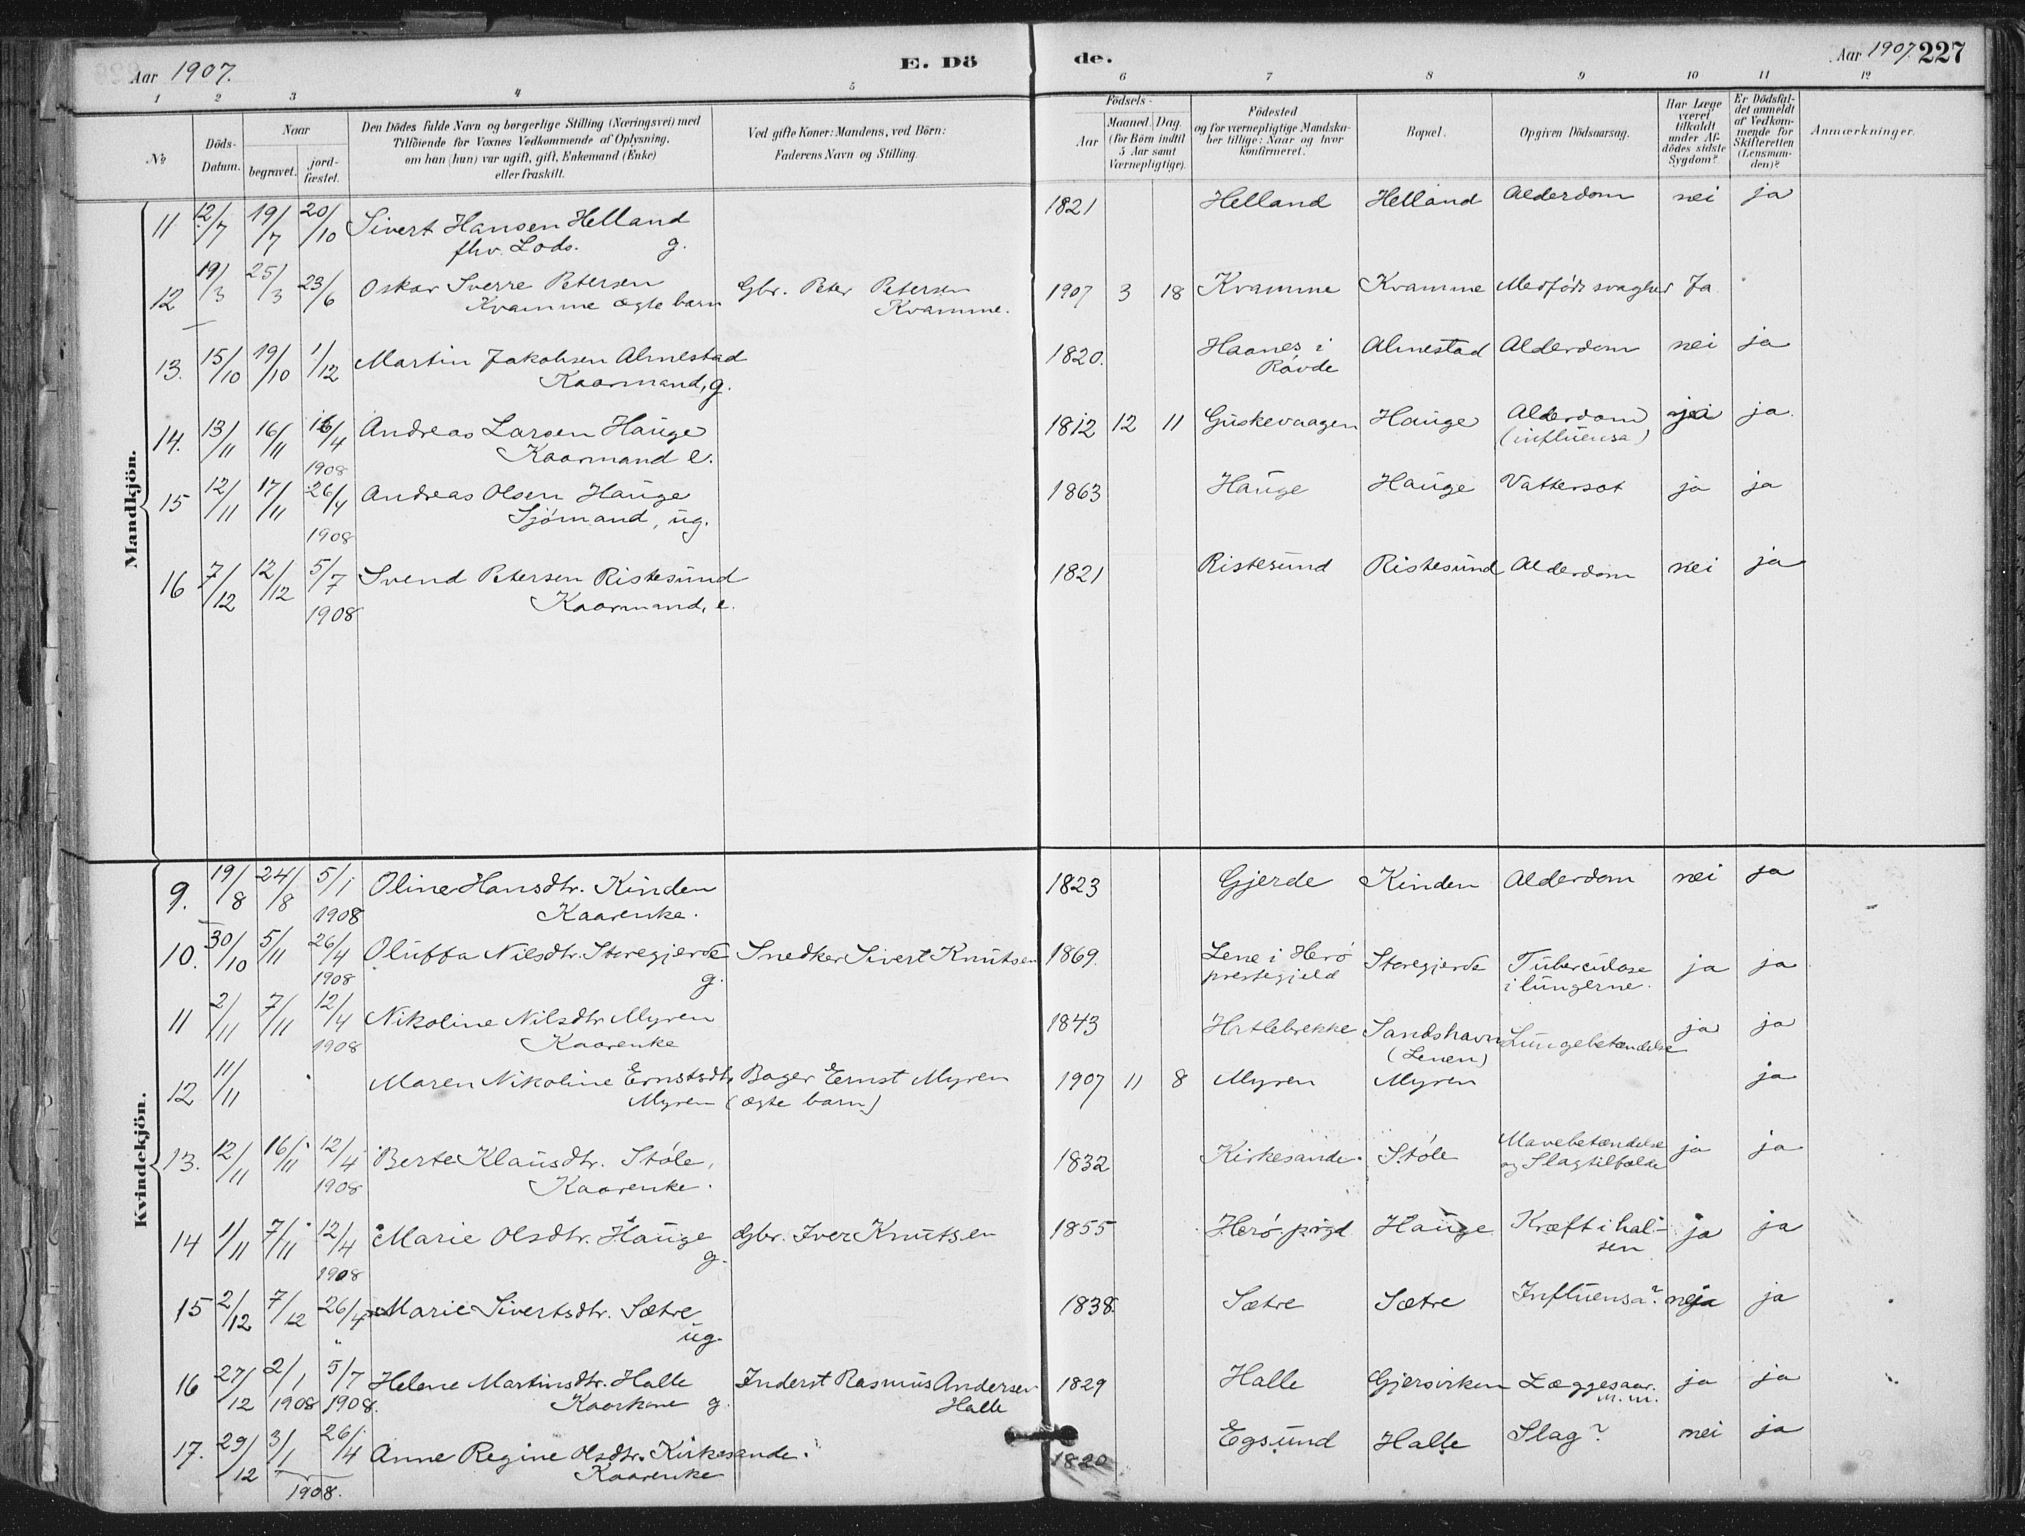 Aar 1907.
E. Dö
de.
Aar 1907. 227
1 2 3 4 5 6 7 8 9 10 11 12
No
Döds-Datum.
Naar
begravet.
jord-fæstet.
Den Dödes fulde Navn og borgerlige Stilling (Næringsvei) med
Tilföiende for Voxnes Vedkommende af Oplysning,
om han (hun) var ugift, gift, Enkemand (Enke)
eller fraskilt.
Ved gifte Koner: Mandens, ved Börn:
Faderens Navn og Stilling.
Födsels-
Aar
Maaned. Dag.
(for Börn indtil
5 Aar samt
Værnepligtige).
Födested
og for værnepligtige Mandska-
ber tillige: Naar og hvor
konfirmeret.
Bopæl.
Opgiven Dödsaarsag.
Har Læge
været
tilkaldt
under Af-
dödes sidste
Sygdom?
Er Dödsfal-
det anmeldt
af Vedkom-
mende for
Skifteretten
(Lensman-
den)?
Anmærkninger.
Mandkjön.
11 12/7 19/7 20/10 Sivert Hansen Helland 1821 Helland Helland Alderdom nei ja
fhv. Lods. g.
12 19/3 25/3 23/6 Oskar Sverre Petersen Gbr. Peter Petersen 1907 3 18 Kvamme Kvamme Medföds svaghed Ja
Kvamme ægte barn Kvamme.
13. 15/10 19/10 1/12 Martin Jakobsen Almestad 1820. Haanes i Almestad Alderdom nei ja
Kaarmand, g. Røvde
14. 13/11 16/11 /4 Andreas Larsen Hauge 1812 12 11 Guskevaagen Hauge Alderdom ja.
1908 Kaarmand e. (influensa)
15 12/11 17/11 26/4 Andreas Olsen Hauge 1863 Hauge Hauge Vattersot ja ja
1908 Sjømand, ug.
16 7/12 12/12 5/7 Svend Petersen Ristesund 1821 Ristesund Ristesund Alderdom nei ja
1908 Kaarmand, e.
Kvindekjön.
9. 19/8 24/8 5/1 Oline Hansdtr. Kinden 1823 Gjerde Kinden Alderdom nei ja
1908 Kaarenke.
10. 30/10 5/11 26/4 Oluffa Nilsdtr. Storegjerde Snedker Sivert Knutsen 1869. Lene i Herø Storegjerde Tuberculose ja ja
1908 g. prestegjeld i lungerne.
11 2/11 7/11 12/4 Nikoline Nilsdtr Myren 1843 Hatlebrekke Sandshavn Lungebetændelse ja ja
1908 Kaarenke (Lenen)
12 11/11 Maren Nikoline Ernstsdtr Bager Ernst Myren 1907 11 8 Myren Myren ja
Myren (ægte barn)
13. 12/11 16/11 12/4 Berte Klausdtr. Støle, 1832 Kirkesande. Støle Mavebetændelse ja ja
1908 Kaarenke. og Slagtilfælde
14 1/11 7/11 12/4 Marie Olsdtr. Hauge Gbr. Iver Knutsen 1855 Herø. prgd Hauge Kræft i hal- ja ja
1908 g. sen
15 2/12 7/12 26/4 Marie Sivertsdtr. Sætre 1838. Sætre Sætre Influensa? ja
" ug.
16 27/12 2/1 5/7 Helene Martinsdtr. Halle Inderst Rasmus Andersen 1829 Halle Gjersvirken Læggesaar. ja ja
1908 1908. Kaarkone g. Halle m.m.
17. 29/12 3/1 26/4 Anne Regine Olsdtr. Kirkesande. 1820 Egsund Halle Slag? nei ja
1908. Kaarenke